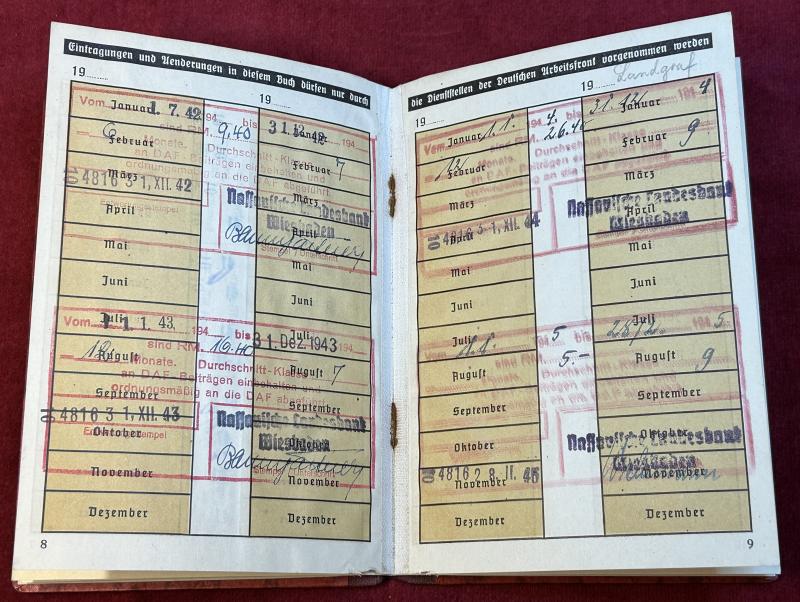 Eintragungen und Aenderungen in diesem Buch dürfen nur durch
19
19
Vom 1. 7. 42 194 bis 31.12.42 194
sind RM. 9,40 Durchschnitt-Klasse
6 Monate. 7
an DAF.-Beiträgen einbehalten und
ordnungsmäßig an die DAF abgeführt.
4816 3 1. XII. 42
Entwertungsstempel
Nassauische Landesbank
Wiesbaden
Stempel / Unterschrift
Januar
Februar
März
April
Mai
Juni
Juli
August
September
Oktober
November
Dezember
Januar
Februar
März
April
Mai
Juni
Juli
August
September
Oktober
November
Dezember
Vom 1. 1. 43. 194 bis 31. Dez. 1943
sind RM. Durchschnitt-Klasse
Monate. 7
an DAF.-Beiträgen einbehalten und
ordnungsmäßig an die DAF abgeführt.
4816 3 1. XII. 43
Nassauische Landesbank
Wiesbaden
8
die Dienststellen der Deutschen Arbeitsfront vorgenommen werden
19
19
Landgraf
Vom 1.1. 194 4. bis 31.12. 194 4
sind RM. Durchschnitt-Klasse
Monate. 9
4816 3 1. XII. 44
Nassauische Landesbank
Wiesbaden
Januar
Februar
März
April
Mai
Juni
Juli
August
September
Oktober
November
Dezember
Januar
Februar
März
April
Mai
Juni
Juli
August
September
Oktober
November
Dezember
5 bis 194 5.
sind RM. 5.- Durchschnitt-Klasse
9
4816 2 8. II. 45
Nassauische Landesbank
Wiesbaden
9